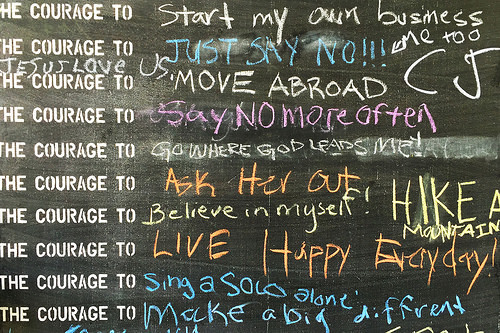 THE COURAGE TO Start my own business
THE COURAGE TO JUST SAY NO!!! me too
JESUS LOVE US.
THE COURAGE TO MOVE ABROAD CJ
THE COURAGE TO Say NO more often
THE COURAGE TO GO WHERE GOD LEADS ME!
THE COURAGE TO ASK Her out
THE COURAGE TO Believe in myself! HIKE A
MOUNTAIN
THE COURAGE TO LIVE Happy Everyday!
THE COURAGE TO Sing a Solo alone
THE COURAGE TO Make a big different